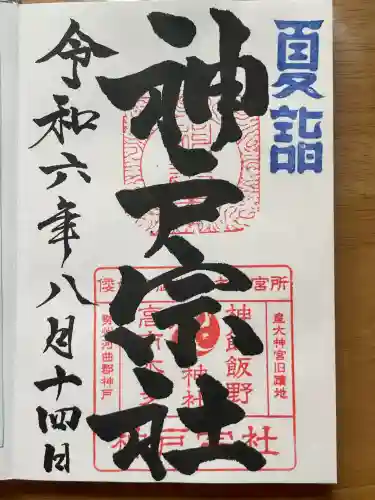 夏詣
神戸宗社
皇大神宮旧蹟地
神館飯野
高市本
神社
勢州河曲郡神戸
神戸宗社
令和六年八月十四日